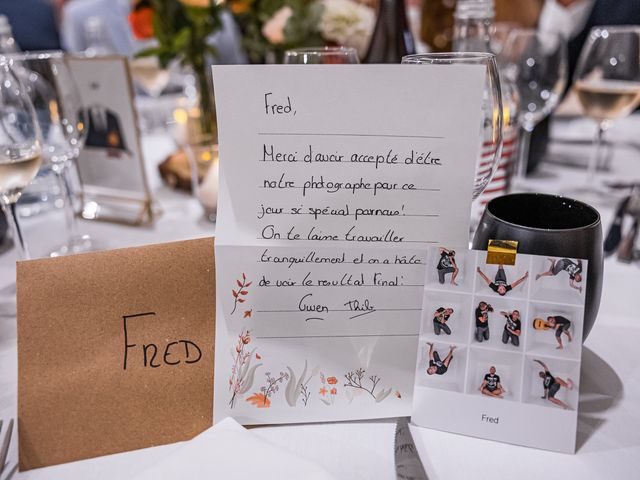 Fred,
Merci d'avoir accepté d'être
notre photographe pour ce
jour si spécial pour nous!
On te laisse travailler
tranquillement et on a hâte
de voir le resultat final!
Gwen Thib
FRED
Fred